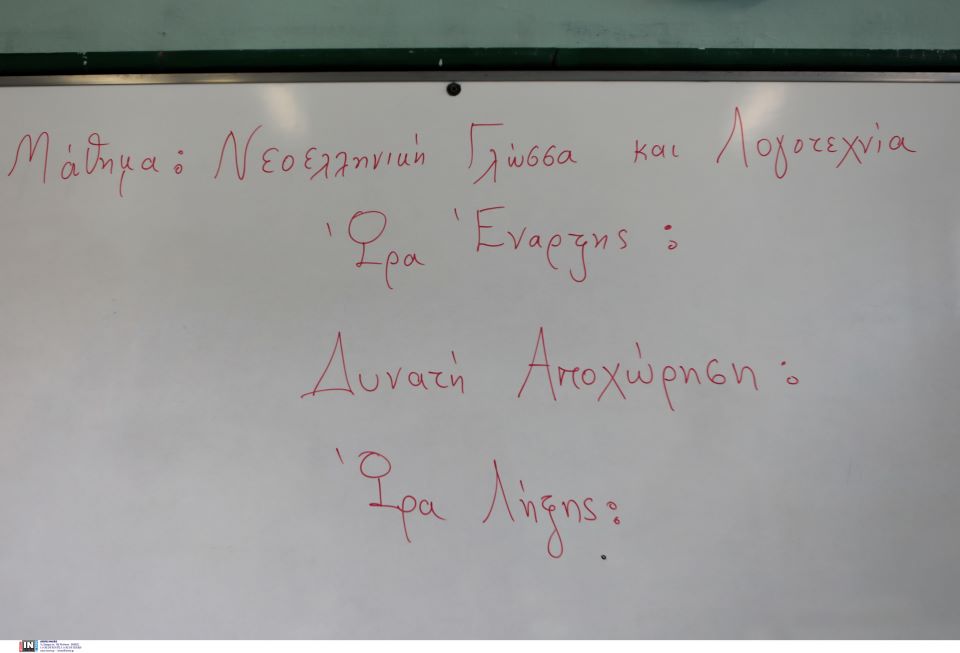 Μάθημα: Νεοελληνική Γλώσσα και Λογοτεχνία
Ώρα Έναρξης:
Δυνατή Αποχώρηση:
Ώρα Λήξης:
IN